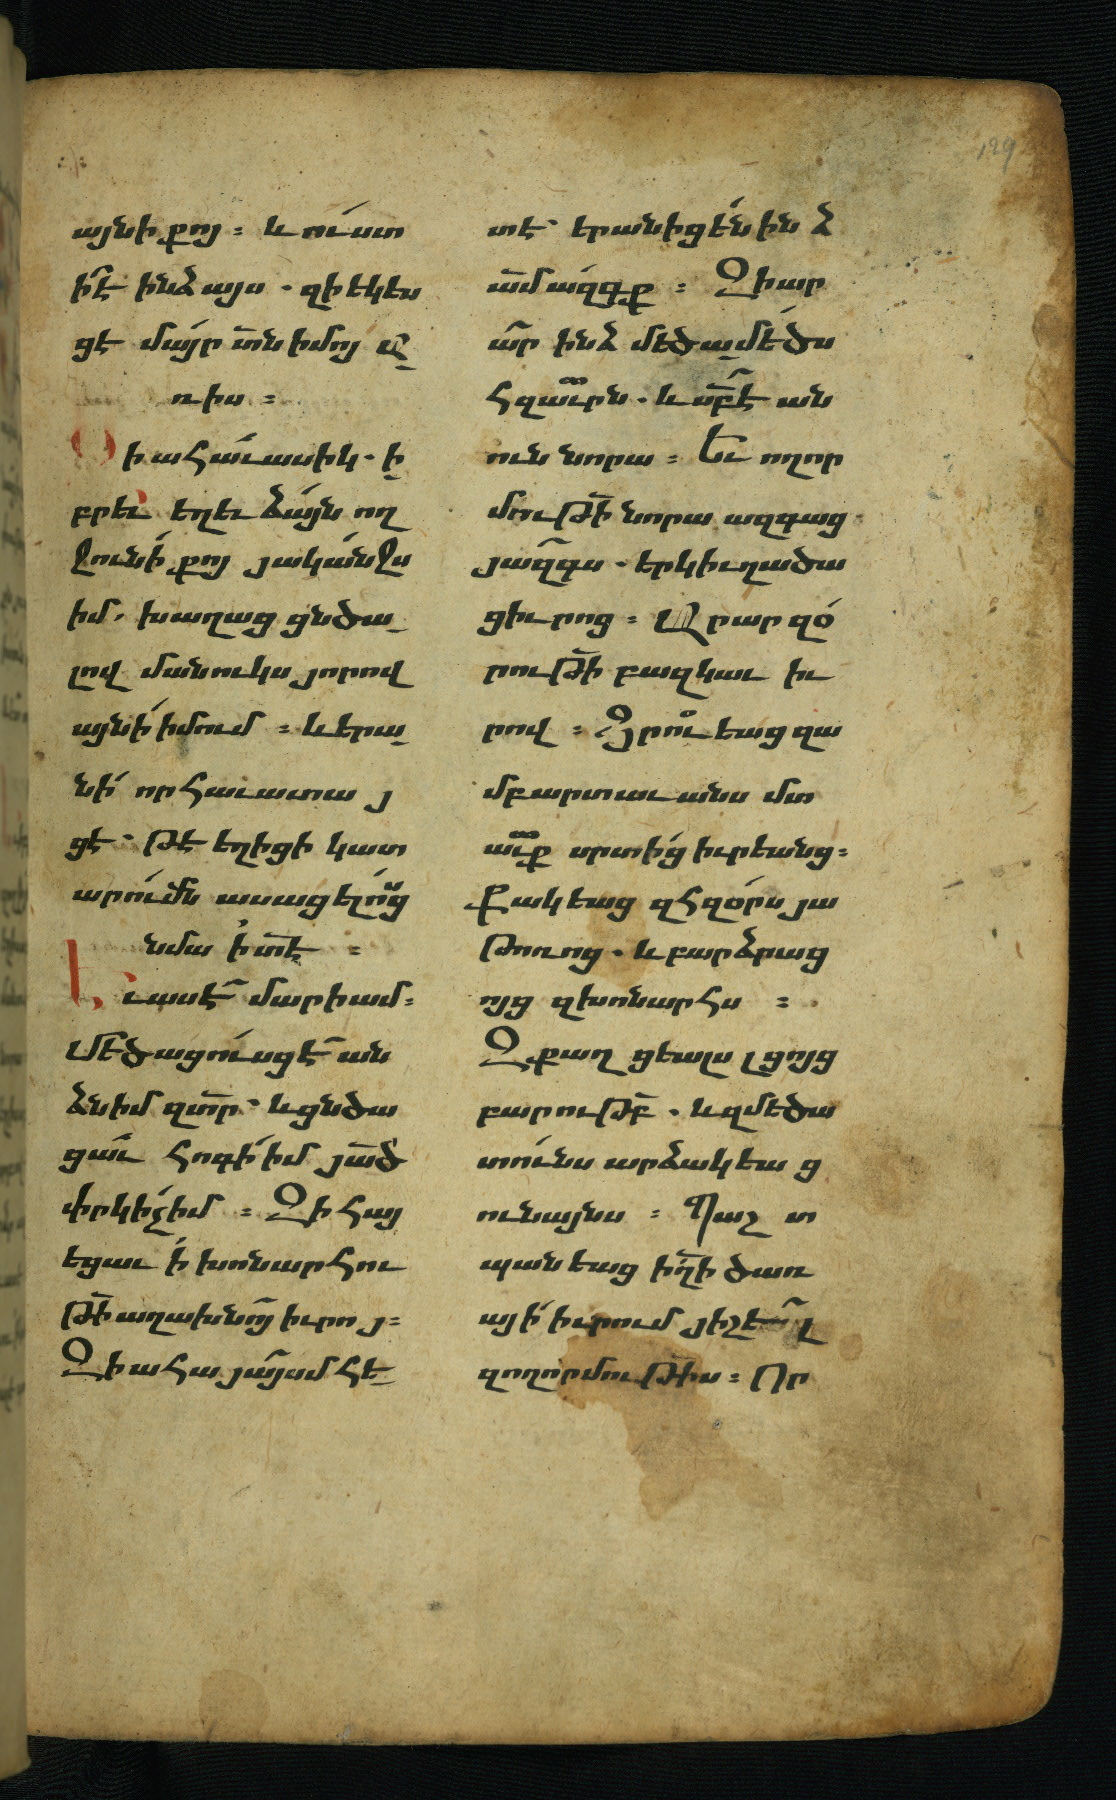 այնի քոյ ։ և ուստ
ի՞է ինձ այս · զի եկես
ցէ մայր տն իմոյ ա
ռ իս ։
Զի ահաւասիկ · ի
բրեւ եղեւ ձայն ող
ջունի քոյ յականջս
իմ, խաղաց ցնծա
լով մանուկս յորով
այնի իմում ։ և երա
նի որ հաւատա յ
ցէ · թէ եղիցի կատ
արումն ասացելոցս
նմա ի տէ ։
Եւ ասէ մարիամ ։
Մեծացուսցէ ան
ձն իմ զտր · և ցնծա
ցաւ հոգի իմ յած
փրկիչ իմ ։ Զի հայ
եցաւ ի խոնարհու
թի աղախնոյ իւրո յ ։
Զի ահա յայսմ հե
տէ · երանիցեն ին ձ
ամ ազգք ։ Զի ար
ար ինձ մեծամեծս
հզաւրն · և սբ է ան
ուն նորա ։ Եւ ողոր
մութի նորա ազգաց
յազգս · երկիւղածա
ցիւրոց ։ Արար զօ
րութի բազկաւ իւ
րով ։ Ցրուեաց զա
մբարտաւանս մտ
աւք սրտից իւրեանց ։
Քակեաց զհզօրս յա
թոռոց · և բարձրաց
ոյց զխոնարհս ։
Զքաղցեալս լցոյց
բարութբ · և զմեծա
տունս արձակեա ց
ունայնս ։ Պաշտ
պանեաց իղի ծառ
այի իւրում յիշել
զողորմութիս ։ Որ
129